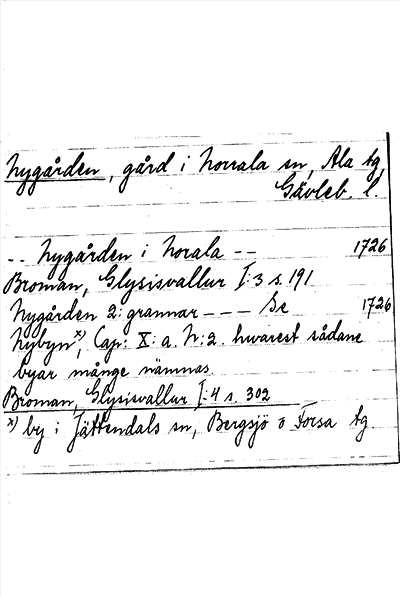 Nygården, gård i Norrala sn, Ala tg
Gävleb. l.
-- Nygården i Norala -- 1726
Broman, Glysisvallur I:3 s. 191
Nygården 2: grannar --- Se 1726
Nybyn x), Cap: X: a. N: 2. hwarest sådane
byar många nämnas.
Broman, Glysisvallur I:4 s. 302
x) by i Jättendals sn, Bergsjö o Forsa tg